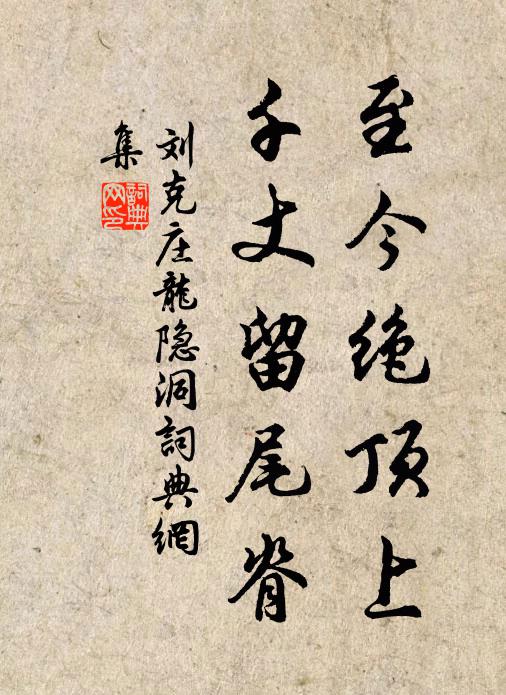 至今绝顶上
千丈留尾脊
刘克庄龍隐洞詞典網
集
詞典网印